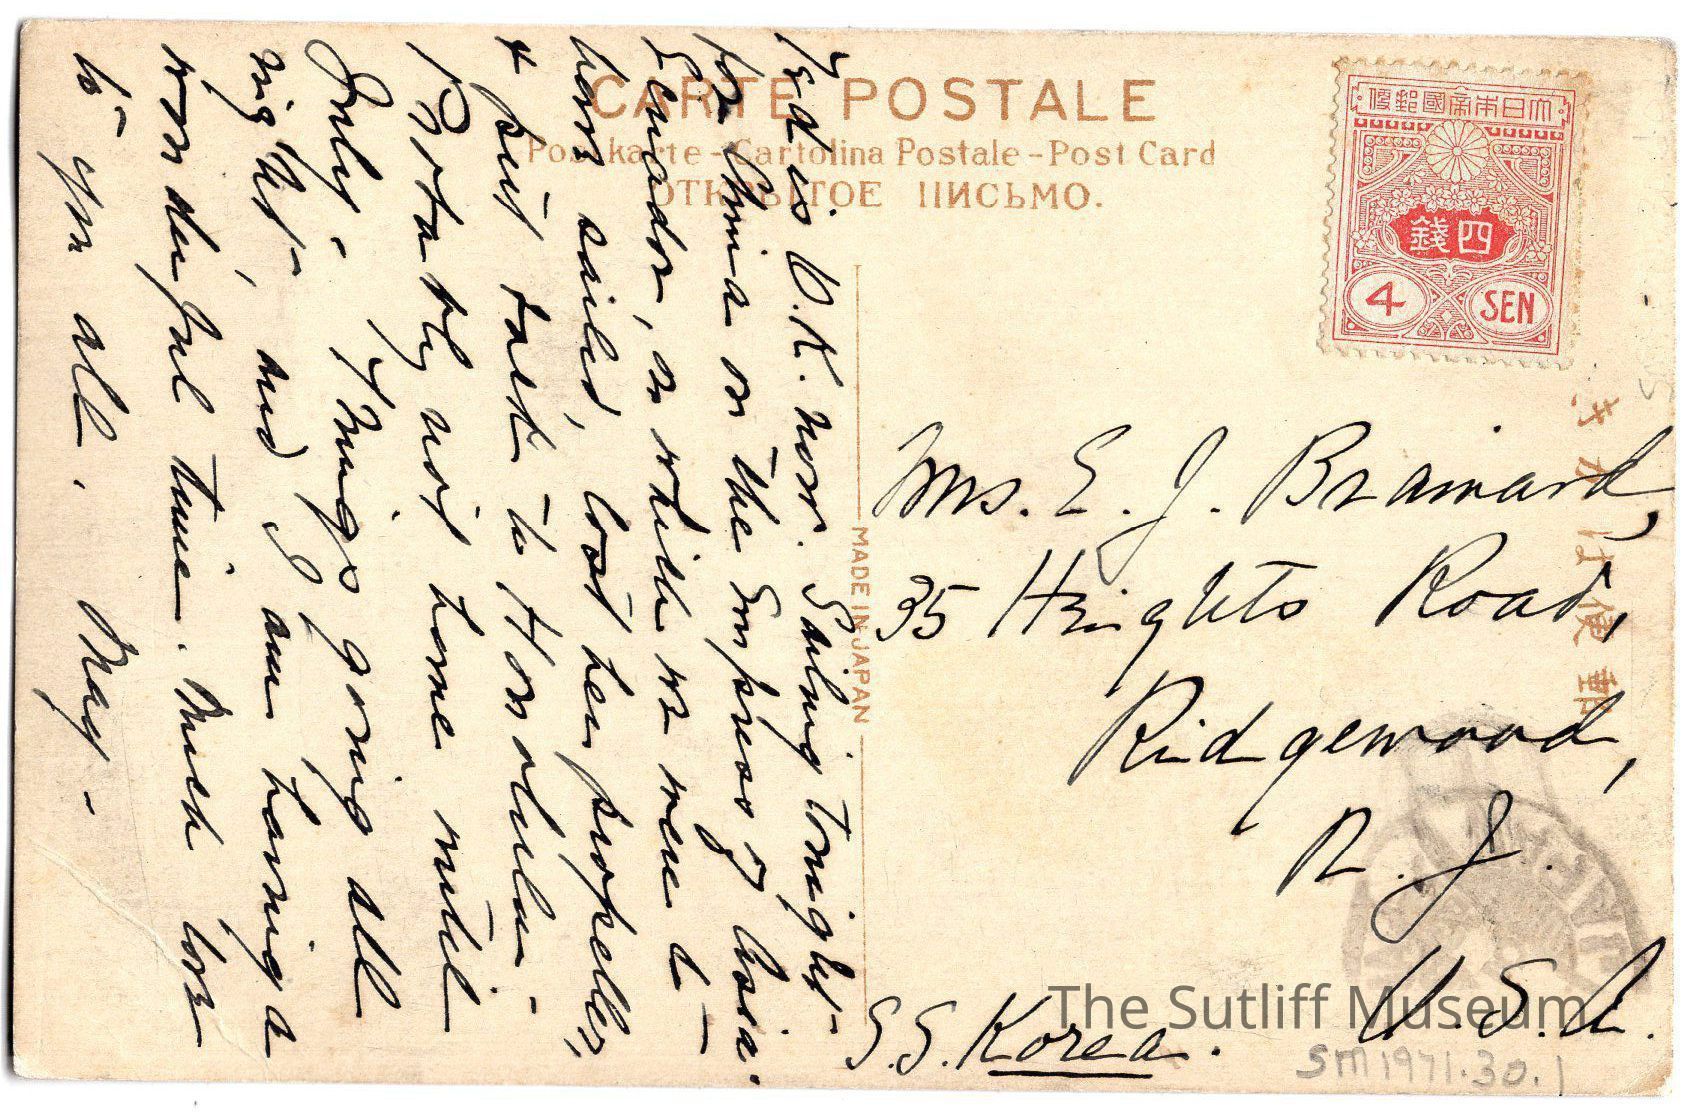 CARTE POSTALE
Postkarte - Cartolina Postale - Post Card
ОТКРЫТОЕ ПИСЬМО.
大日本帝國郵便
四錢
4 SEN
郵便はがき
MADE IN JAPAN
Ted is O.K. now. Sailing tonight -
for China on the Empress of Asia.
Ecuador, on which we were to -
have sailed, lost her propeller,
& put back to Honolulu -
Probably not home until
July - Things going all
right -, and I am having a
wonderful time. Much love
to you all. May -
Mrs. E. J. Brainard,
35 Heights Road,
Ridgewood,
N. J.
U. S. A.
S.S. Korea.
The Sutliff Museum
SM1971.30.1